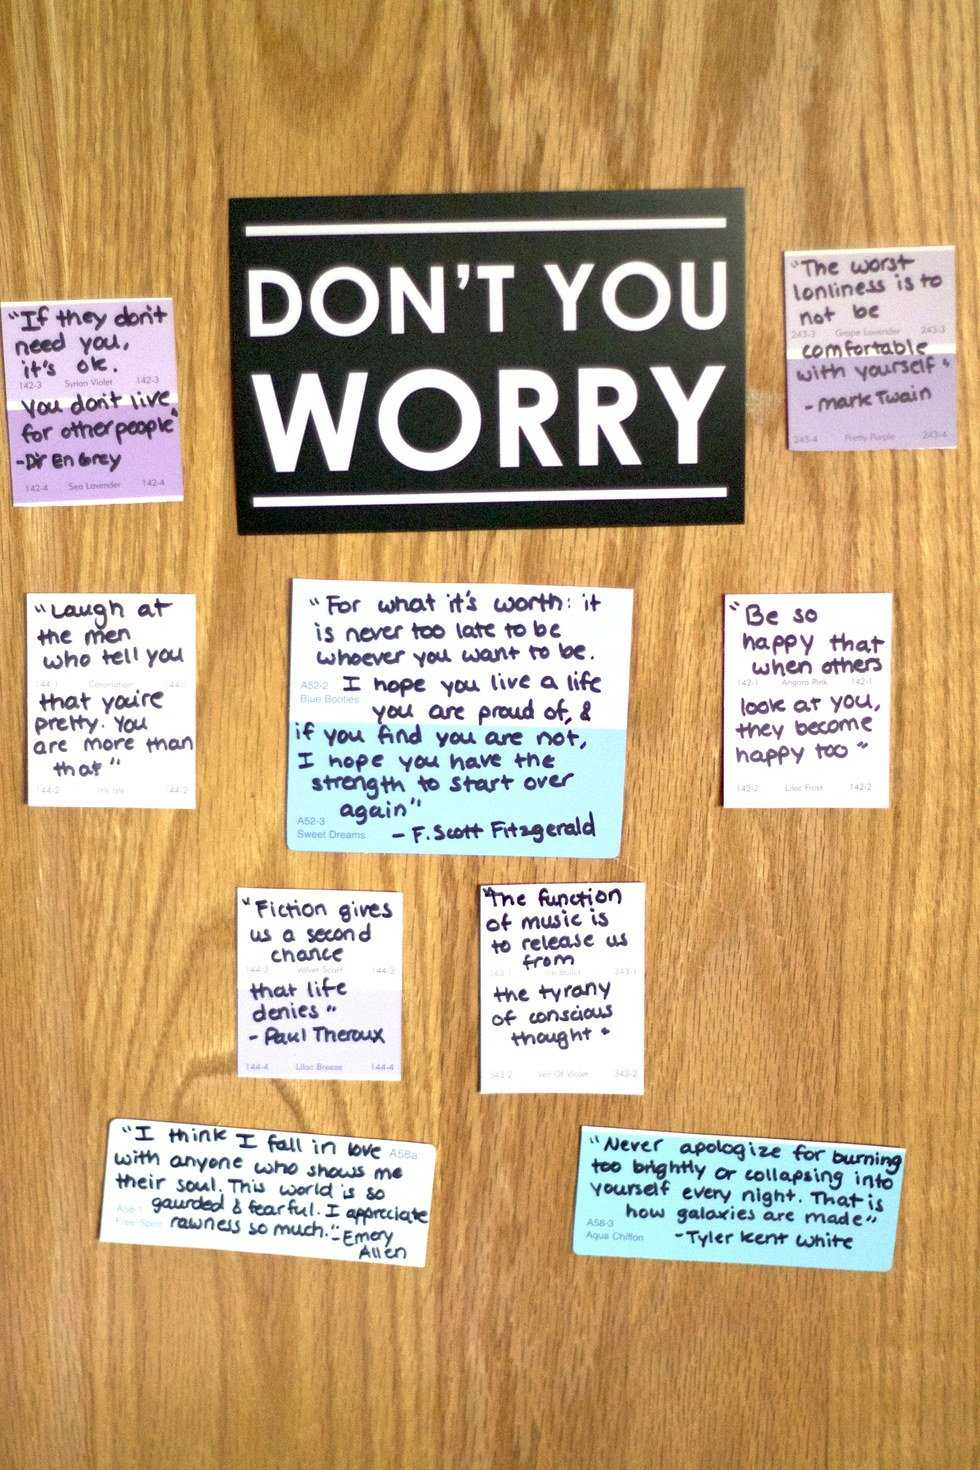 DON'T YOU
WORRY
"If they don't
need you,
it's ok.
142-3 Syrian Violet 142-3
You don't live
for other people"
-Dir En Grey
142-4 Sea Lavender 142-4
"The worst
lonliness is to
not be
243-3 Grape Lavender 243-3
comfortable
with yourself"
-Mark Twain
243-4 Pretty Purple 243-4
"Laugh at
the men
who tell you
144-1 144-1
that you're
pretty. You
are more than
that"
144-2 144-2
"For what it's worth: it
is never too late to be
whoever you want to be.
A52-2 I hope you live a life
Blue Booties
you are proud of, &
if you find you are not,
I hope you have the
strength to start over
again"
A52-3
Sweet Dreams
- F. Scott Fitzgerald
"Be so
happy that
when others
142-1 Angora Pink 142-1
look at you,
they become
happy too"
142-2 Lilac Frost 142-2
"Fiction gives
us a second
chance
144-3 Velvet Scarf 144-3
that life
denies"
- Paul Theroux
144-4 Lilac Breeze 144-4
"The function
of music is
to release us
from
343-1
the tyrany
of conscious
thought"
343-2 Veil Of Violet 343-2
"I think I fall in love
A58a
with anyone who shows me
their soul. This world is so
gaurded & fearful. I appreciate
rawness so much."-Emery
Allen
"Never apologize for burning
too brightly or collapsing into
yourself every night. That is
how galaxies are made"
A58-3
Aqua Chiffon
-Tyler Kent White